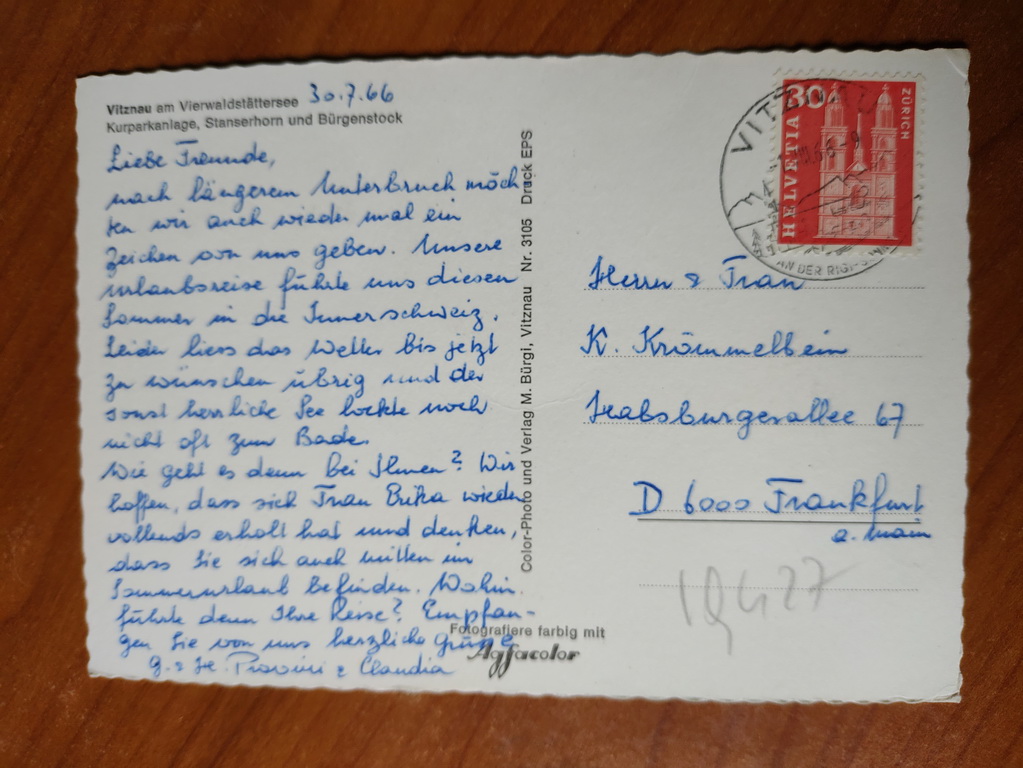 Vitznau am Vierwaldstättersee 30.7.66
Kurparkanlage, Stanserhorn und Bürgenstock
Liebe Freunde,
nach längerem Unterbruch möch
ten wir auch wieder mal ein
Zeichen von uns geben. Unsere
Urlaubsreise führte uns diesen
Sommer in die Innerschweiz.
Leider liess das Wetter bis jetzt
zu wünschen übrig und der
sonst herrliche See lockte noch
nicht oft zum Bade.
Wie geht es denn bei Ihnen? Wir
hoffen, dass sich Frau Erika wieder
vollends erholt hat und denken,
dass Sie sich auch mitten im
Sommerurlaub befinden. Wohin
führte denn Ihre Reise? Empfan-
gen Sie von uns herzliche Grüsse
G. & H. & Claudia
Color-Photo und Verlag M. Bürgi, Vitznau Nr. 3105 Druck EPS
Fotografiere farbig mit
Agfacolor
30
HELVETIA
ZÜRICH
VITZNAU
AN DER RIGI
Herrn & Frau
K. Krömmelbein
Habsburgerallee 67
D 6000 Frankfurt
a. Main
19427